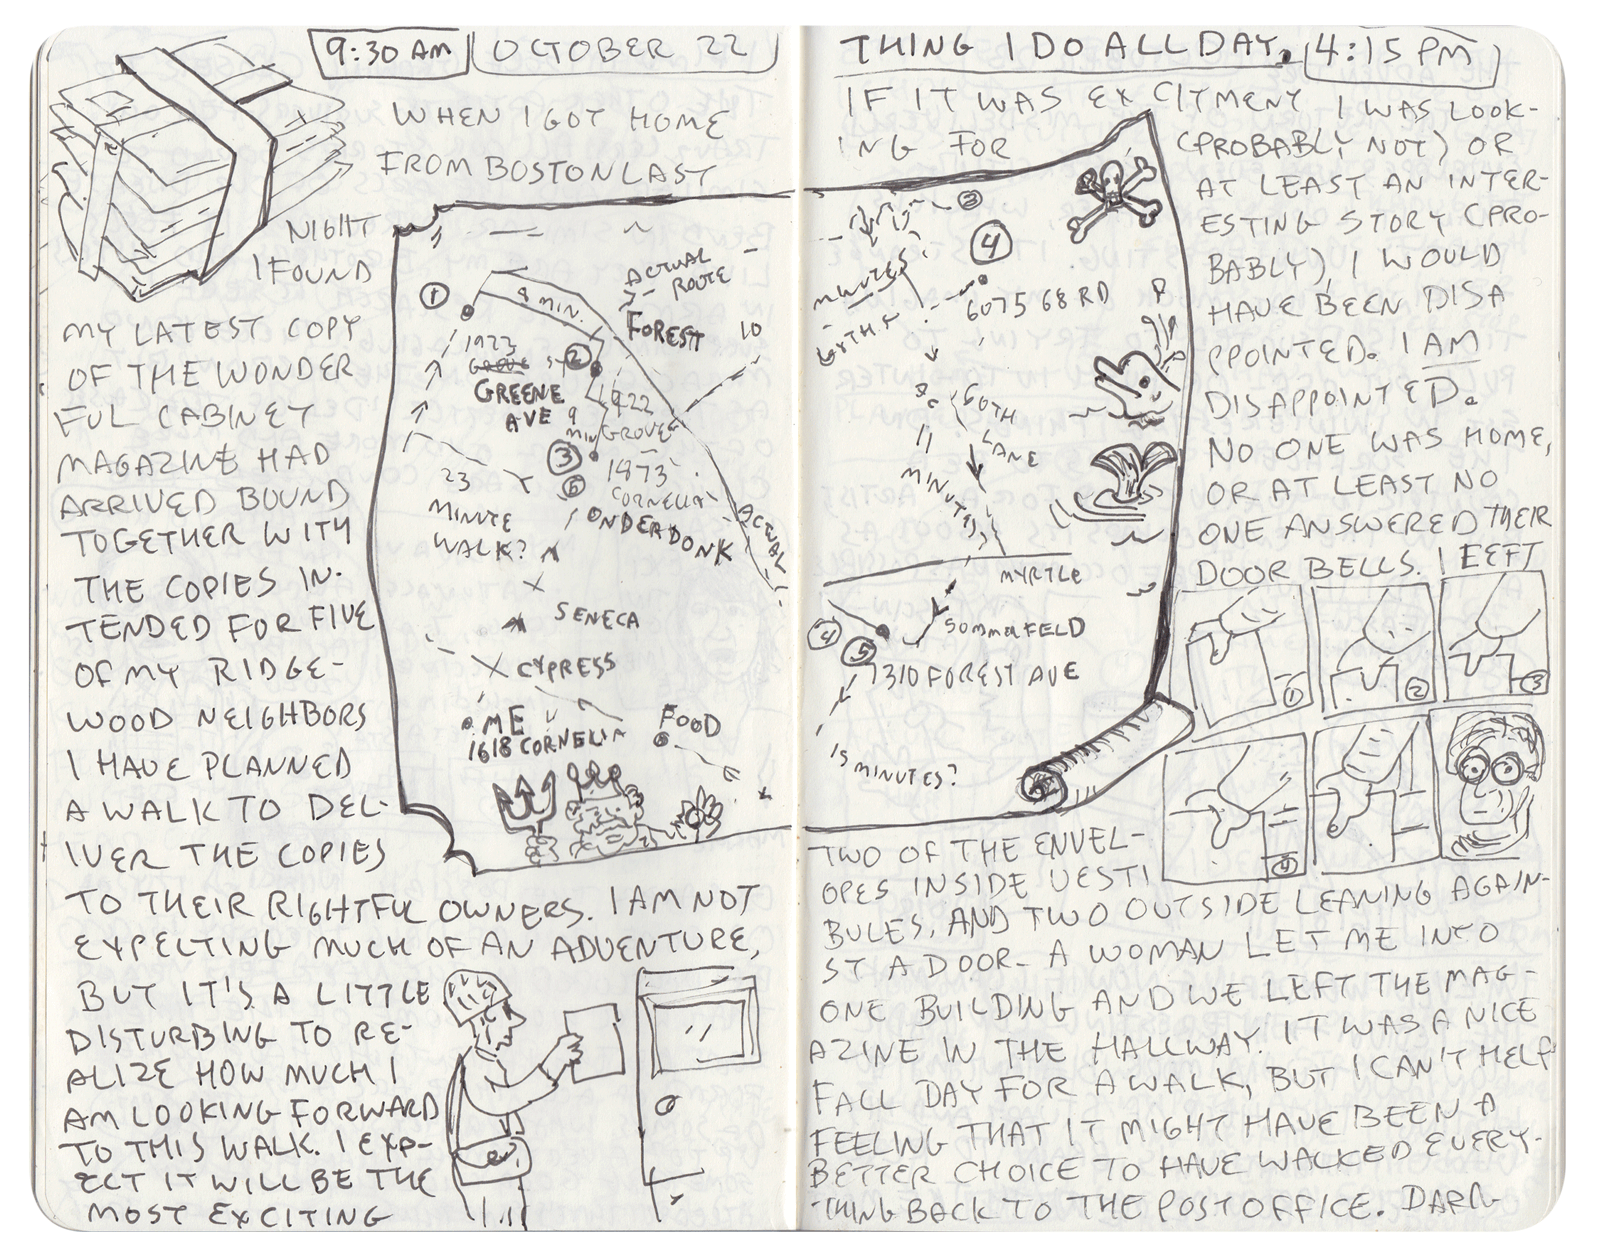 9:30 AM
OCTOBER 22
WHEN I GOT HOME
FROM BOSTON LAST
NIGHT
I FOUND
MY LATEST COPY
OF THE WONDER
FUL CABINET
MAGAZINE HAD
ARRIVED BOUND
TOGETHER WITH
THE COPIES IN-
TENDED FOR FIVE
OF MY RIDGE-
WOOD NEIGHBORS
I HAVE PLANNED
A WALK TO DEL-
IVER THE COPIES
TO THEIR RIGHTFUL OWNERS. I AM NOT
EXPECTING MUCH OF AN ADVENTURE,
BUT IT'S A LITTLE
DISTURBING TO RE-
ALIZE HOW MUCH I
AM LOOKING FORWARD
TO THIS WALK. I EXP-
ECT IT WILL BE THE
MOST EXCITING
1
8 MIN.
ACTUAL
ROUTE
FOREST
10
1923
GREENE
AVE
2
1922
GROVE
9
MIN
3
6
1873
CORNELIA
ONDERDONK
23
MINUTE
WALK?
ACTUAL
SENECA
CYPRESS
ME
1618 CORNELIA
FOOD
THING I DO ALL DAY.
4:15 PM
IF IT WAS EXCITMENT I WAS LOOK-
ING FOR (PROBABLY NOT) OR
AT LEAST AN INTER-
ESTING STORY (PRO-
BABLY), I WOULD
HAVE BEEN DISA
PPOINTED. I AM
DISAPPOINTED.
NO ONE WAS HOME,
OR AT LEAST NO
ONE ANSWERED THEIR
DOOR BELLS. I LEFT
3
4
6075 68 RD
MINUTES
60TH
LANE
MINUTES
MYRTLE
SOMMERFELD
4
5
7310 FOREST AVE
15 MINUTES?
1
2
3
4
TWO OF THE ENVEL-
OPES INSIDE VESTI
BULES, AND TWO OUTSIDE LEANING AGAIN-
ST A DOOR- A WOMAN LET ME INTO
ONE BUILDING AND WE LEFT THE MAG-
AZINE IN THE HALLWAY. IT WAS A NICE
FALL DAY FOR A WALK, BUT I CAN'T HELP
FEELING THAT IT MIGHT HAVE BEEN A
BETTER CHOICE TO HAVE WALKED EVERY-
THING BACK TO THE POST OFFICE. DARG